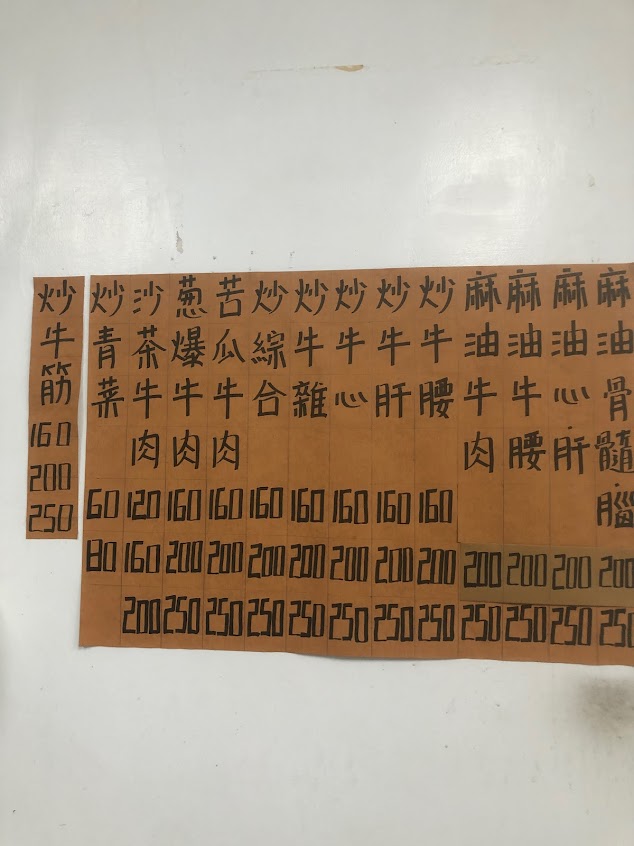 麻油骨髓.腦 200 250
麻油心.肝 200 250
麻油牛腰 200 250
麻油牛肉 200 250
炒牛腰 160 200 250
炒牛肝 160 200 250
炒牛心 160 200 250
炒牛雜 160 200 250
炒綜合 160 200 250
苦瓜牛肉 160 200 250
葱爆牛肉 160 200 250
沙茶牛肉 120 160 200
炒青菜 60 80
炒牛筋 160 200 250